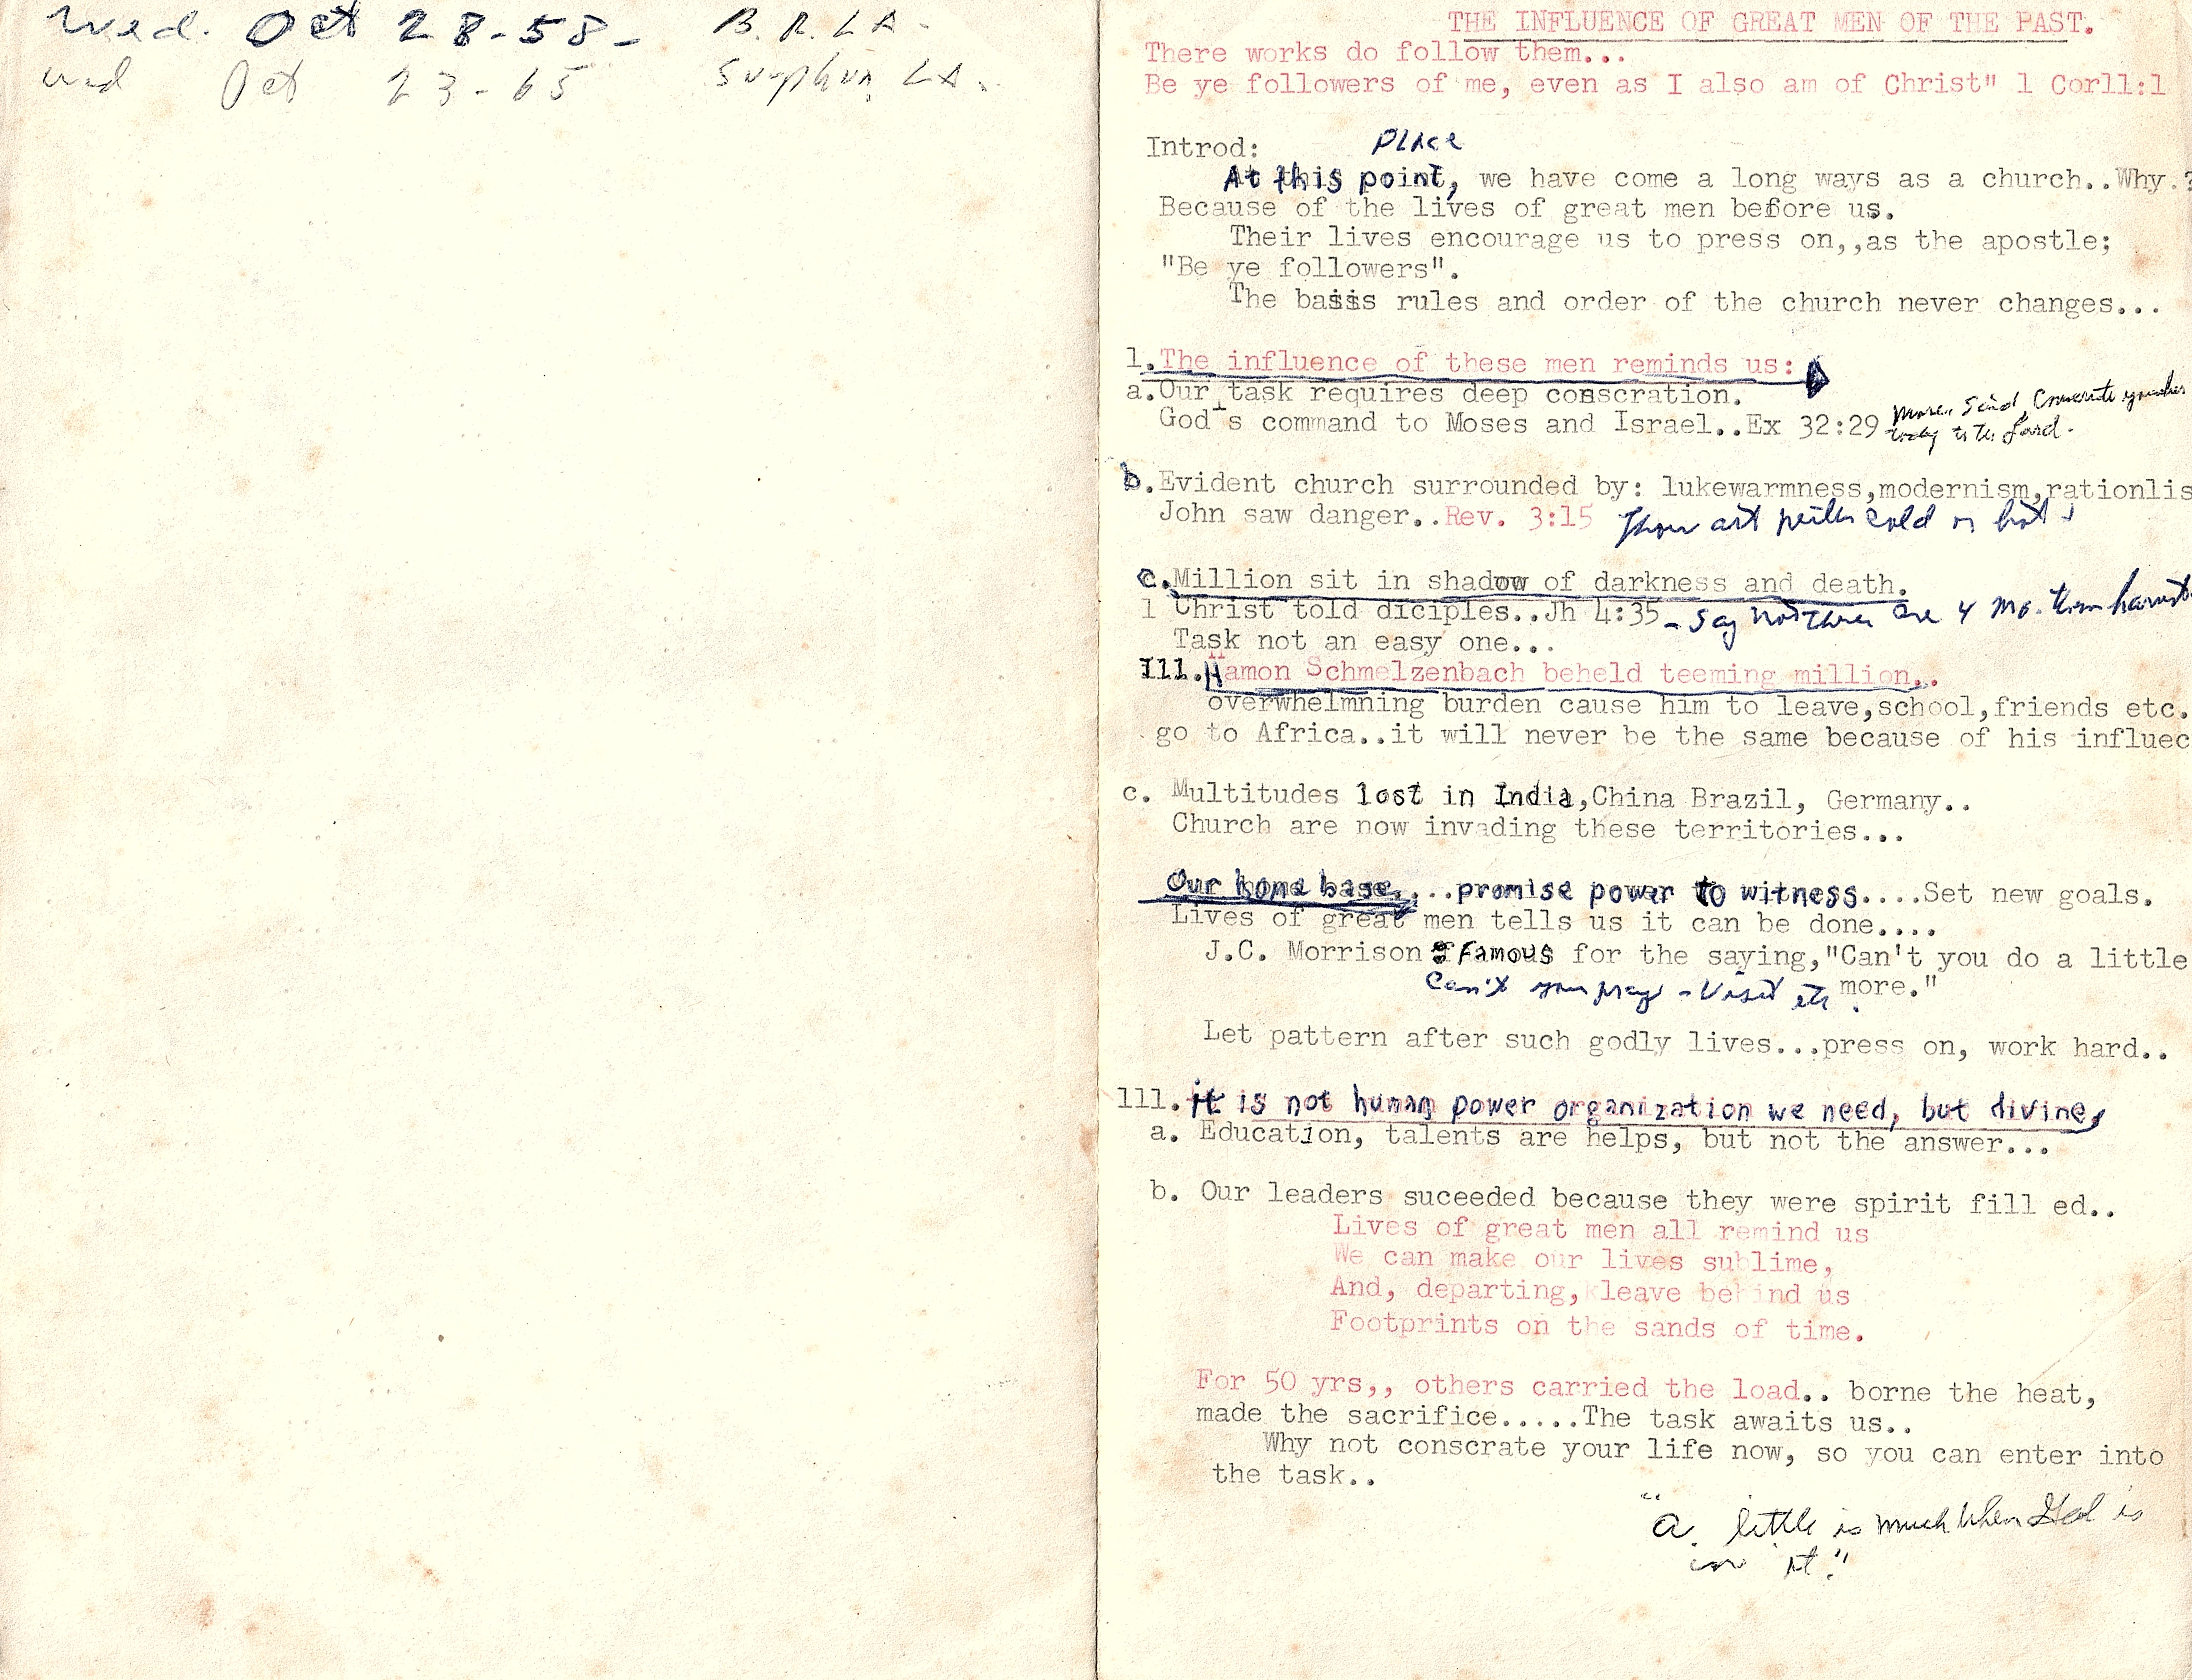 Wed. Oct 28-58- B.R. LA-
Wed Oct 23-65 Sulphur, LA.
THE INFLUENCE OF GREAT MEN OF THE PAST.
There works do follow them...
Be ye followers of me, even as I also am of Christ" 1 Cor11:1
Introd:
Place
At this point, we have come a long ways as a church..Why.?
Because of the lives of great men before us.
Their lives encourage us to press on,,as the apostle;
"Be ye followers".
The basis rules and order of the church never changes...
1.The influence of these men reminds us:
a.Our task requires deep conscration.
God's command to Moses and Israel..Ex 32:29 Moses said, Consecrate yourselves
today to the Lord.
b.Evident church surrounded by: lukewarmness,modernism,rationlis
John saw danger..Rev. 3:15 Thou art neither cold or hot
c.Million sit in shadow of darkness and death.
1 Christ told diciples..Jh 4:35 - Say not there are 4 mo. then harvest
Task not an easy one...
Ill.Hamon Schmelzenbach beheld teeming million..
overwhelmning burden cause him to leave,school,friends etc.
go to Africa..it will never be the same because of his influec
c. Multitudes lost in India,China Brazil, Germany..
Church are now invading these territories...
Our home base,...promise power to witness....Set new goals.
Lives of great men tells us it can be done....
J.C. Morrison famous for the saying,"Can't you do a little
Can't you pray - Visit etc. more."
Let pattern after such godly lives...press on, work hard..
111.it is not human power organization we need, but divine,
a. Education, talents are helps, but not the answer...
b. Our leaders suceeded because they were spirit fill ed..
Lives of great men all remind us
We can make our lives sublime,
And, departing, leave behind us
Footprints on the sands of time.
For 50 yrs,, others carried the load.. borne the heat,
made the sacrifice.....The task awaits us..
Why not conscrate your life now, so you can enter into
the task..
"a little is much when God is
in it."